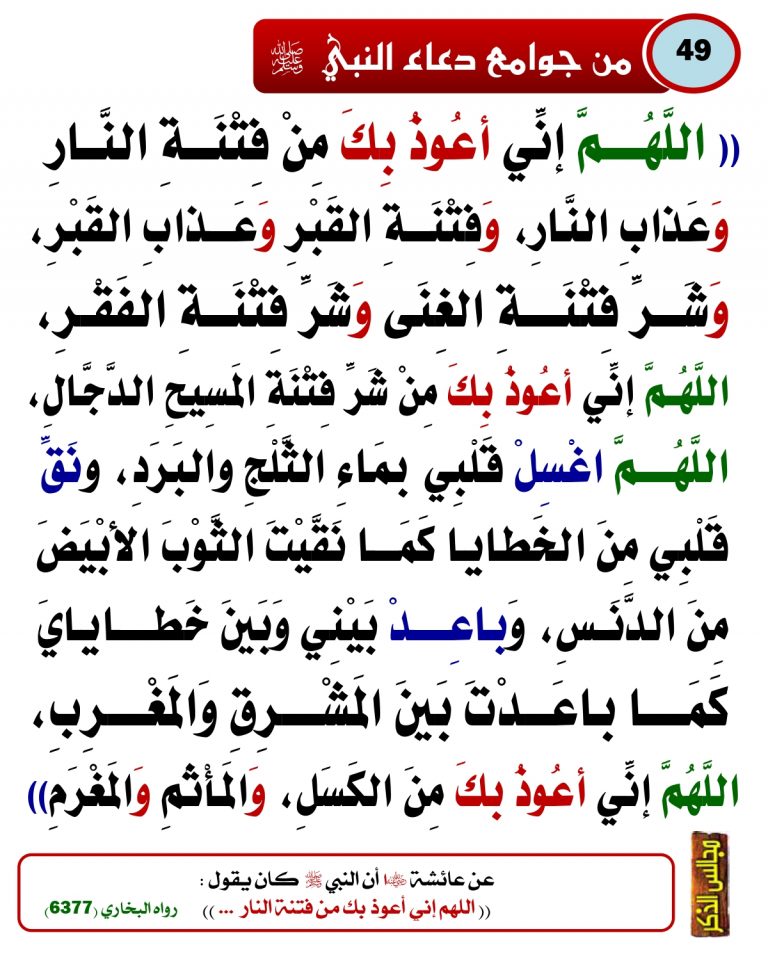 49
من جوامع دعاء النبي ﷺ
(( اللَّهُمَّ إنِّي أعُوذُ بِكَ مِنْ فِتْنَةِ النَّارِ
وَعَذابِ النَّارِ، وَفِتْنَةِ القَبْرِ وَعَذابِ القَبْرِ،
وَشَرِّ فِتْنَةِ الغِنَى وَشَرِّ فِتْنَةِ الفَقْرِ،
اللَّهُمَّ إنِّي أعُوذُ بِكَ مِنْ شَرِّ فِتْنَةِ المَسِيحِ الدَّجَّالِ،
اللَّهُمَّ اغْسِلْ قَلْبِي بمَاءِ الثَّلْجِ والبَرَدِ، ونَقِّ
قَلْبِي مِنَ الخَطايا كَمَا نَقَّيْتَ الثَّوْبَ الأبْيَضَ
مِنَ الدَّنَسِ، وَباعِدْ بَيْنِي وَبَينَ خَطايايَ
كَمَا باعَدْتَ بَينَ المَشْرِقِ وَالمَغْرِبِ،
اللَّهُمَّ إنِّي أعُوذُ بكَ مِنَ الكَسَلِ، وَالمَأْثمِ وَالمَغْرَمِ))
مجالس الذكر
عن عائشة أن النبي ﷺ كان يقول :
(( اللهم إني أعوذ بك من فتنة النار ... )) رواه البخاري (6377)